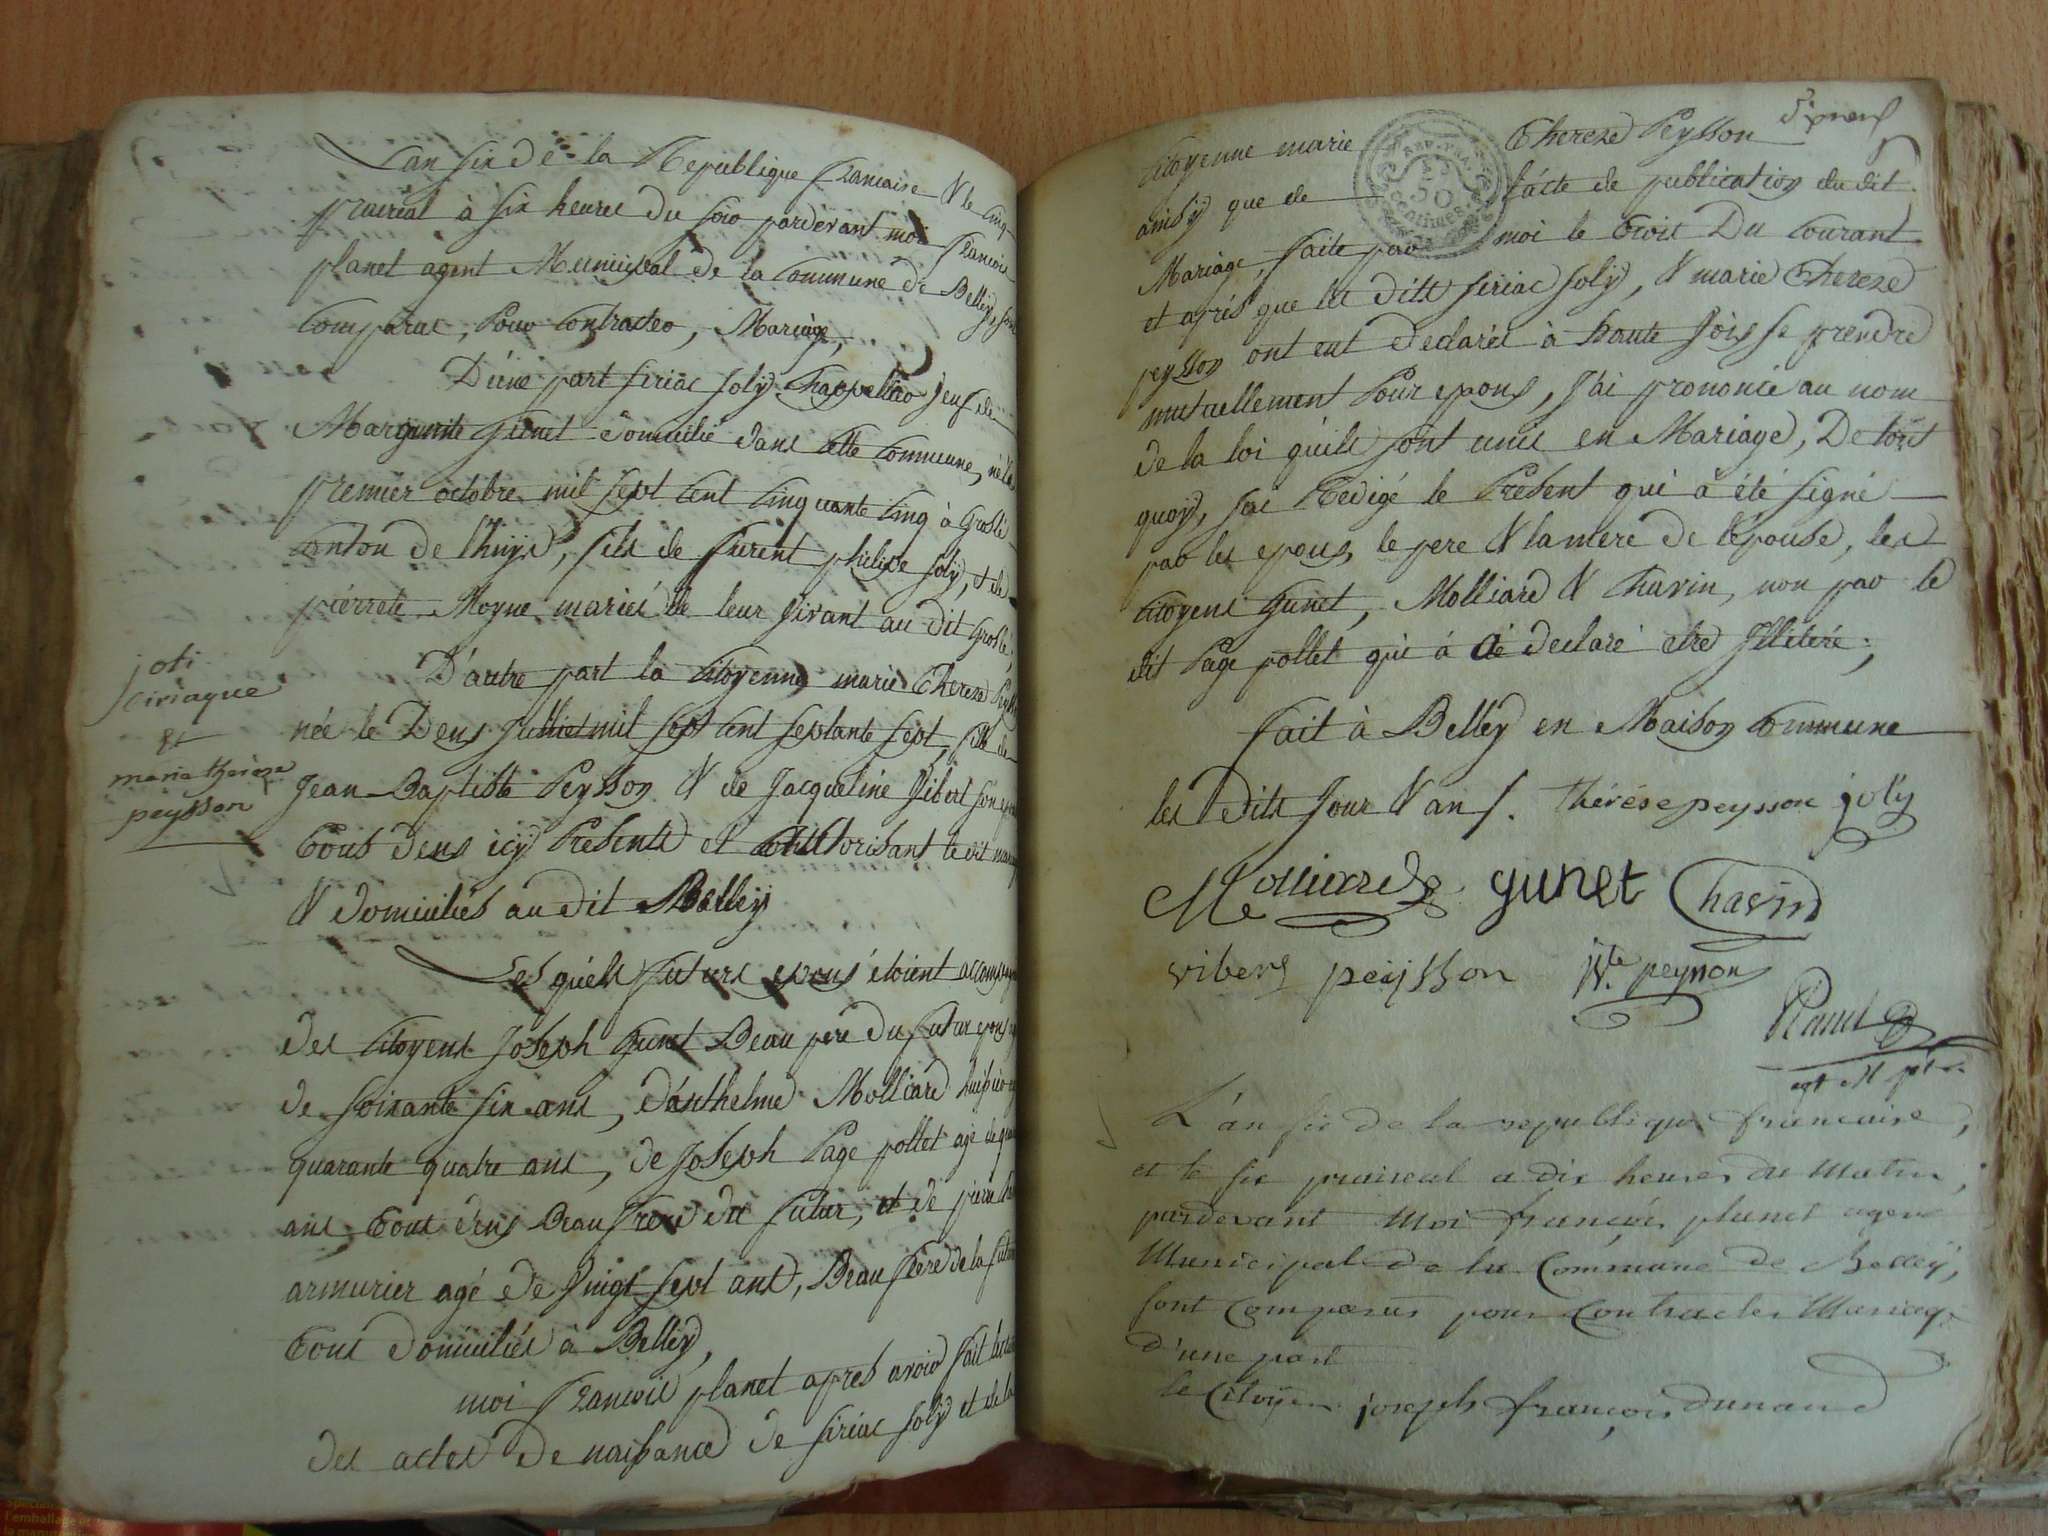 L'an six de la Republique francaise & le cinq
prairial à six heures du soir pardevant moi francois
planet agent Municipal de la Commune de Belley, sont
comparus, Pour contracter, Mariage,
D'une part siriac joly Chappellier veuf de
Marguerite gunet domicilié dans cette commune, né le
premier octobre mil sept cent cinquante cinq à Groslé
canton de lhuys, fils de furent philipe joly, et de
pierrete Moyne mariés de leur vivant au dit Groslé,
D'autre part la citoyenne marie Thereze
née le Deus mil sept cent septante sept, fille de
Jean-Baptiste Peysson & de Jacqueline vibert son
tous deus icy Présents et authorisant le dit
& domiciliés au dit Belley
joli
ciriaque
et
marie thereze
peysson
Les quels futurs epous étoient
des citoyens Joseph gunet Beau père du futur epous
de soixante six ans, d'anthelme Molliard huissier
quarante quatre ans, de Joseph Page pollet agé de
ans tous deus Beau frere du futur, et de pierre
armurier agé de vingt sept ans, Beau frère de la future
tous domiciliés à Belley,
moi francois planet apres avoir fait
des actes de naissance de siriac joly et de la
citoyenne marie Thereze Peysson
REP. FRA.
50
centimes
ainsy que de l'acte de publication du dit
Mariage, faite par moi le trois du courant
et après que les dits siriac joly, & marie Thereze
peysson ont eut declarés à haute vois se prendre
mutuellement Pour epous, j'ai prononcé au nom
de la loi qu'ils sont unis en Mariage, De tout
quoy, j'ai Redigé le Présent qui à été signé
par les epous, le pere & la mere de l'épouse, les
citoyens gunet, Molliard & Chavin, non par le
dit Page pollet qui à dé declaré etre Illiteré,
fait à Belley en Maison Commune
les dits jour & an f. thérése peysson joly
Molliard gunet Chavin
vibert peijsson peysson
Planet
agt
L'an six de la republique francaise,
et le six prairial a dix heures du matin,
pardevant moi françois planet agent
Municipal de la Commune de Belley,
sont comparus pour contracter Mariage
d'une part
le Citoyen joseph françois dunand